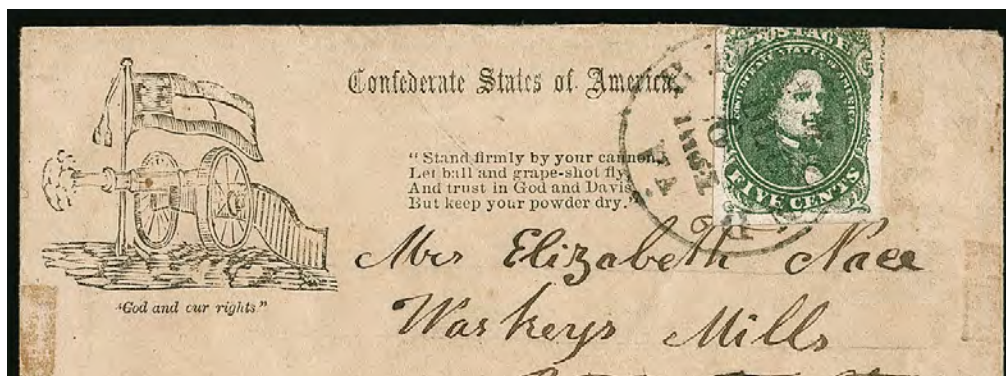 Confederate States of America.
"Stand firmly by your cannon,
Let ball and grape-shot fly,
And trust in God and Davis,
But keep your powder dry."
STAGE
CONFEDERATE STATES OF AMERICA
FIVE CENTS
VA.
Mrs Elizabeth Nace
Waskeys Mills
"God and our rights"